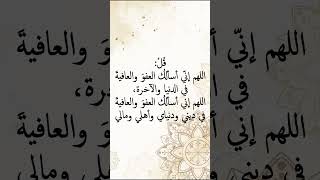 قُل:
اللهم إنّي أسألك العفوَ والعافية
في الدنيا والآخرة،
اللهم إنّي أسألك العفوَ والعافية
في ديني ودنياي وأهلي ومالي